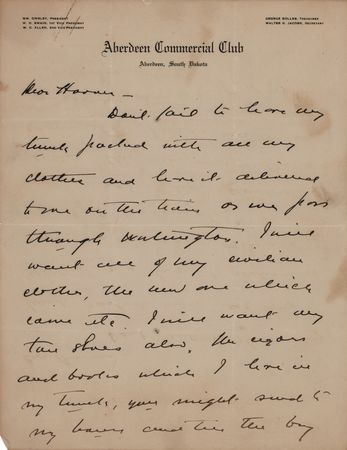 WM. OWSLEY, PRESIDENT
W. C. ALLEN, 2ND VICE PRESIDENT
GEORGE BOLLES, TREASURER
WALTER G. JACOBS, SECRETARY
Aberdeen Commercial Club
Aberdeen, South Dakota
Dear
Don't fail to have my
trunk packed with all my
clothes and have it delivered
to me on the train as we pass
through Washington. I will
want all of my civilian
clothes, the new one which
came etc. I will want my
tan shoes also. The cigars
and books which I have in
my trunk, you might send to
my home and the